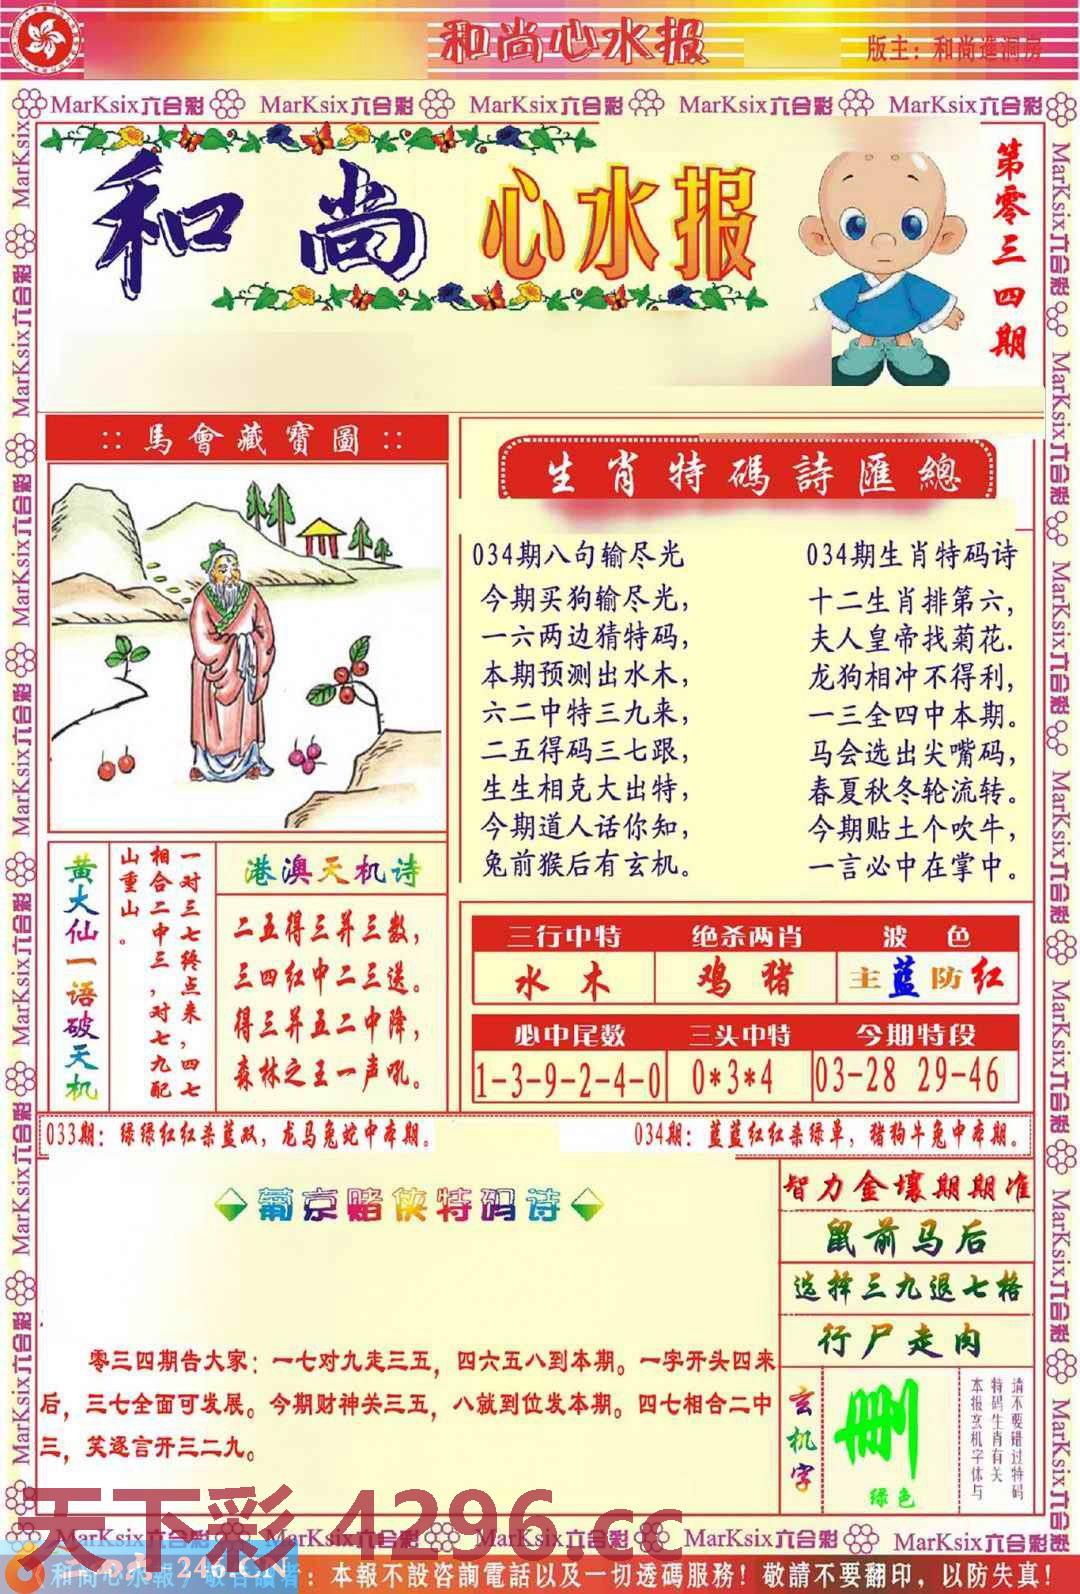 和尚心水报
版主：和尚進洞房
MarKsix六合彩 MarKsix六合彩 MarKsix六合彩 MarKsix六合彩 MarKsix六合彩
和尚心水报
第零三四期
::馬會藏寶圖::
生肖特碼詩匯總
034期八句输尽光
今期买狗输尽光，
一六两边猜特码，
本期预测出水木，
六二中特三九来，
二五得码三七跟，
生生相克大出特，
今期道人话你知，
兔前猴后有玄机。
034期生肖特码诗
十二生肖排第六，
夫人皇帝找菊花.
龙狗相冲不得利，
一三全四中本期。
马会选出尖嘴码，
春夏秋冬轮流转。
今期贴士个吹牛，
一言必中在掌中。
黄大仙一语破天机
一对三七终点来，四七
相合二中三，对七九配
山重山。
港澳天机诗
二五得三并三数，
三四红中二三送。
得三并五二中降，
森林之王一声吼。
三行中特 绝杀两肖 波色
水木 鸡猪 主蓝防红
必中尾数 三头中特 今期特段
1-3-9-2-4-0 0*3*4 03-28 29-46
033期：绿绿红红杀蓝双，龙马兔蛇中本期。
034期：蓝蓝红红杀绿单，猪狗牛兔中本期。
葡京赌侠特码诗
零三四期告大家：一七对九走三五，四六五八到本期。一字开头四来
后，三七全面可发展。今期财神关三五，八就到位发本期。四七相合二中
三，笑逐言开三二九。
智力金壤期期准
鼠前马后
选择三九退七格
行尸走肉
玄机字
删
绿色
请不要错过特码
特码生肖有关
本报玄机字体与
天下彩 4296.cc
MarKsix六合彩 MarKsix六合彩 MarKsix六合彩 MarKsix六合彩 MarKsix六合彩
246.CN
和尚心水報，敬告讀者：本報不設咨詢電話以及一切透碼服務！敬請不要翻印，以防失真！